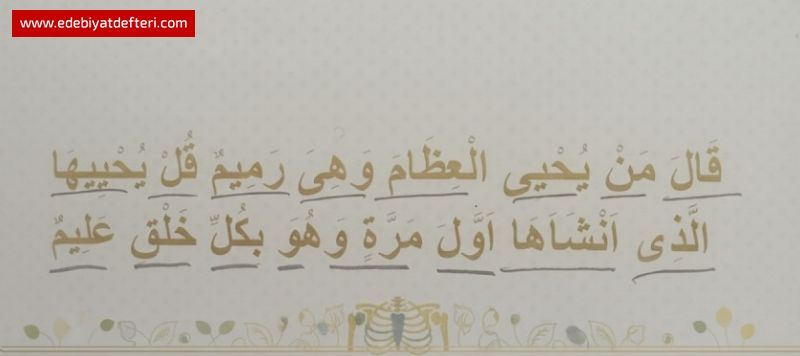 www.edebiyatdefteri.com
قَالَ مَنْ يُحْيِى الْعِظَامَ وَهِىَ رَمِيمٌ قُلْ يُحْيِيهَا
الَّذِى اَنْشَاَهَا اَوَّلَ مَرَّةٍ وَهُوَ بِكُلِّ خَلْقٍ عَلِيمٌ